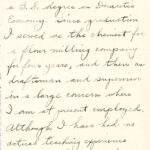 a B.S. degree in Domestic
Economy. Since graduation
I served as the chemist for
a flour milling company
for four years, and then as
draftsman and supervisor
in a large concern where
I am at present employed.
Although I have had no
actual teaching experience